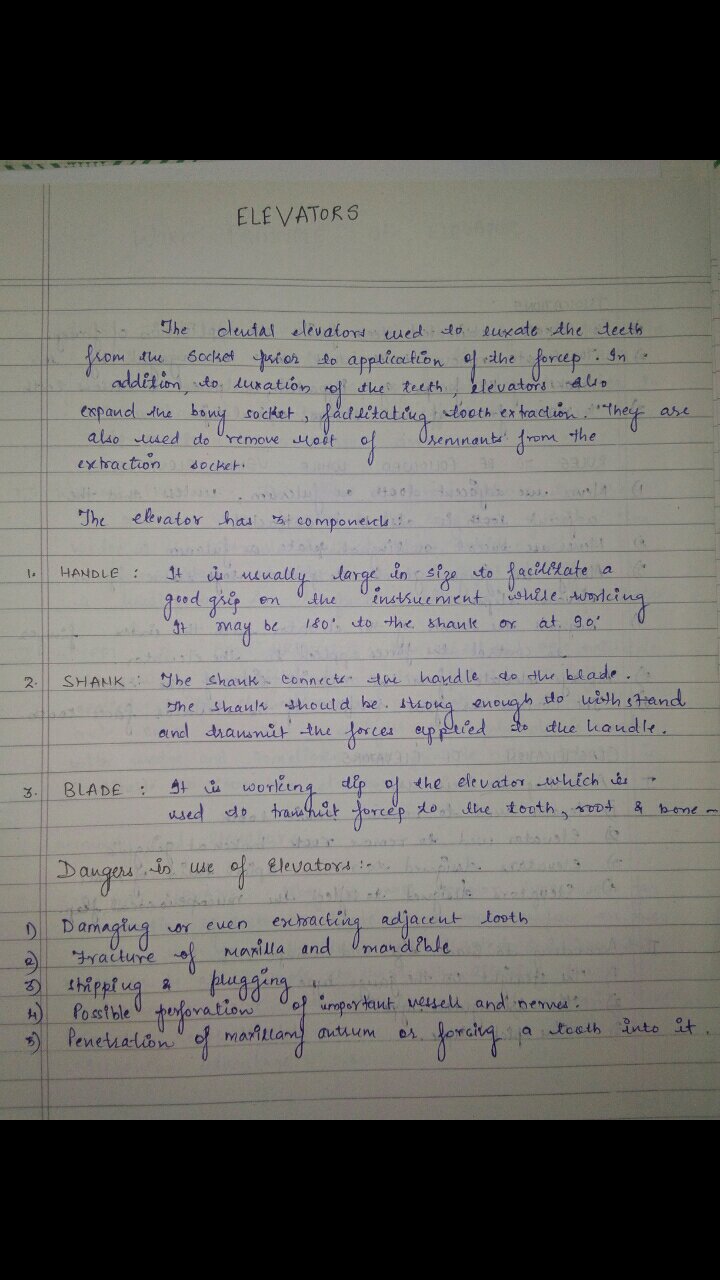 ELEVATORS
The dental elevators used to luxate the teeth
from the socket prior to application of the forcep. In
addition, to luxation of the teeth, elevators also
expand the bony socket, facilitating tooth extraction. They are
also used to remove root of remnants from the
extraction socket.
The elevator has 3 components:
1. HANDLE : It is usually large in size to facilitate a
good grip on the instruement while working
It may be 180° to the shank or at 90°
2. SHANK : The shank connects the handle to the blade.
The shank should be strong enough to withstand
and transmit the forces applied to the handle.
3. BLADE : It is working tip of the elevator which is
used to transmit forcep to the tooth, root & bone
Dangers in use of Elevators :-
1) Damaging or even extracting adjacent tooth
2) Fracture of maxilla and mandible
3) Slipping & plugging
4) Possible perforation of important vessels and nerves.
5) Penetration of maxillary antrum or forcing a tooth into it.